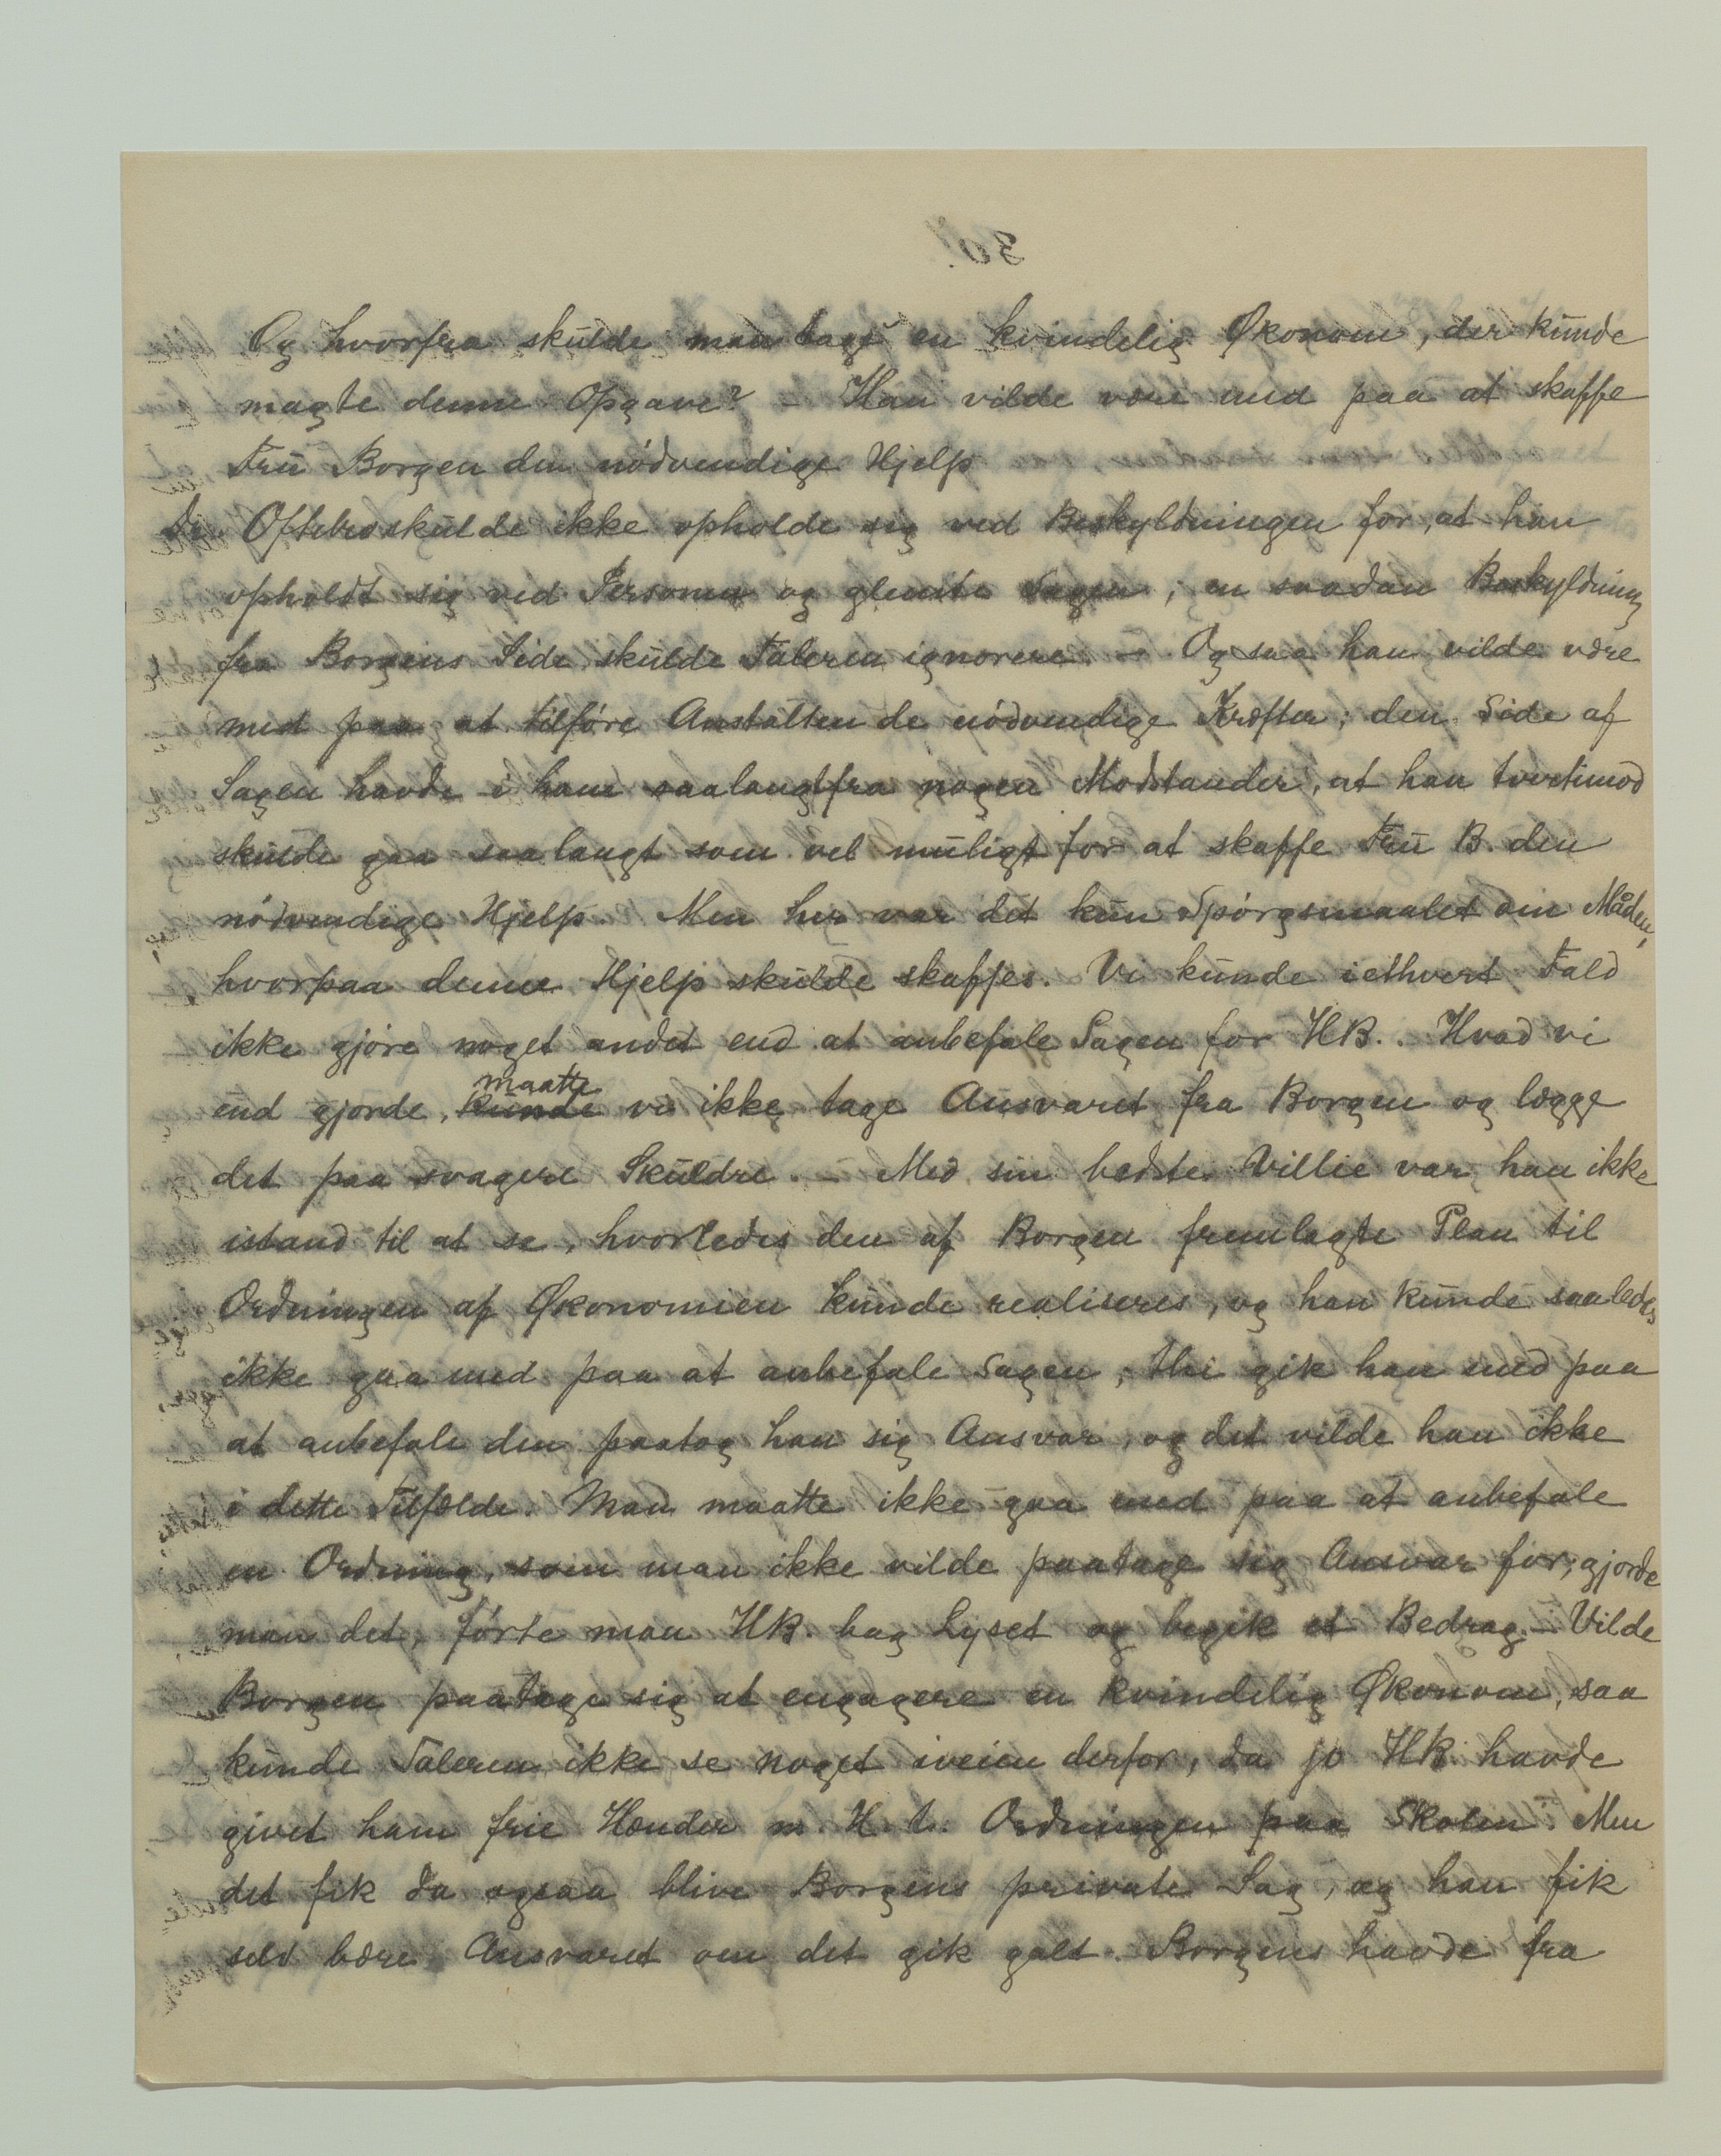 Og hvorfra skulde man tage en kvindelig Økonom, der kunde
magte denne Opgave? – Han vilde være med paa at skaffe
Fru Borgen den nödvendige Hjelp
Dr Oftebro skulde ikke opholde sig ved Beskyldningen for, at han
opholdt sig ved Personen og glemte Sagen; en saadan Beskyldning
fra Borgens Side skulde Taleren ignorere. – Ogsaa han vilde være
med paa at tilföre Anstalten de nödvendige Kræfter; den Side af
Sagen havde i ham saalangtfra nogen Modstander, at han tvertimod
skulde gaa saa langt som vel muligt for at skaffe Fru B. den
nödvendige Hjelp. Men her var det kun Spörgsmaalet om Måden,
hvorpaa denne Hjelp skulde skaffes. Vi kunde iethvert Fald
ikke gjöre noget andet end at anbefale Sagen for HB.. Hvad vi
maatte
end gjorde, kunde vi ikke tage Ansvaret fra Borgen og lægge
det paa svagere Skuldre. – Med sin bedste Villie var han ikke
istand til at se, hvorledes den af Borgen fremlagte Plan til
Ordningen af Økonomien kunde realiseres, og han kunde saaledes
ikke gaa med paa at anbefale Sagen; thi gik han med paa
at anbefale den paatog han sig Ansvar, og det vilde han ikke
i dette Tilfælde. Man maatte ikke gaa med paa at anbefale
en Ordning, som man ikke vilde paatage sig Ansvar for; gjorde
man det, förte man HB. bag Lyset og begik et Bedrag. – Vilde
Borgen paatage sig at engagere en kvindelig Økonom, saa
kunde Taleren ikke se noget iveien derfor, da jo HB. havde
givet ham frie Hænder m. H. t. Ordningen paa Skolen. Men
det fik da ogsaa blive Borgens private Sag, og han fik
selv bære Ansvaret om det gik galt. Borgens havde fra